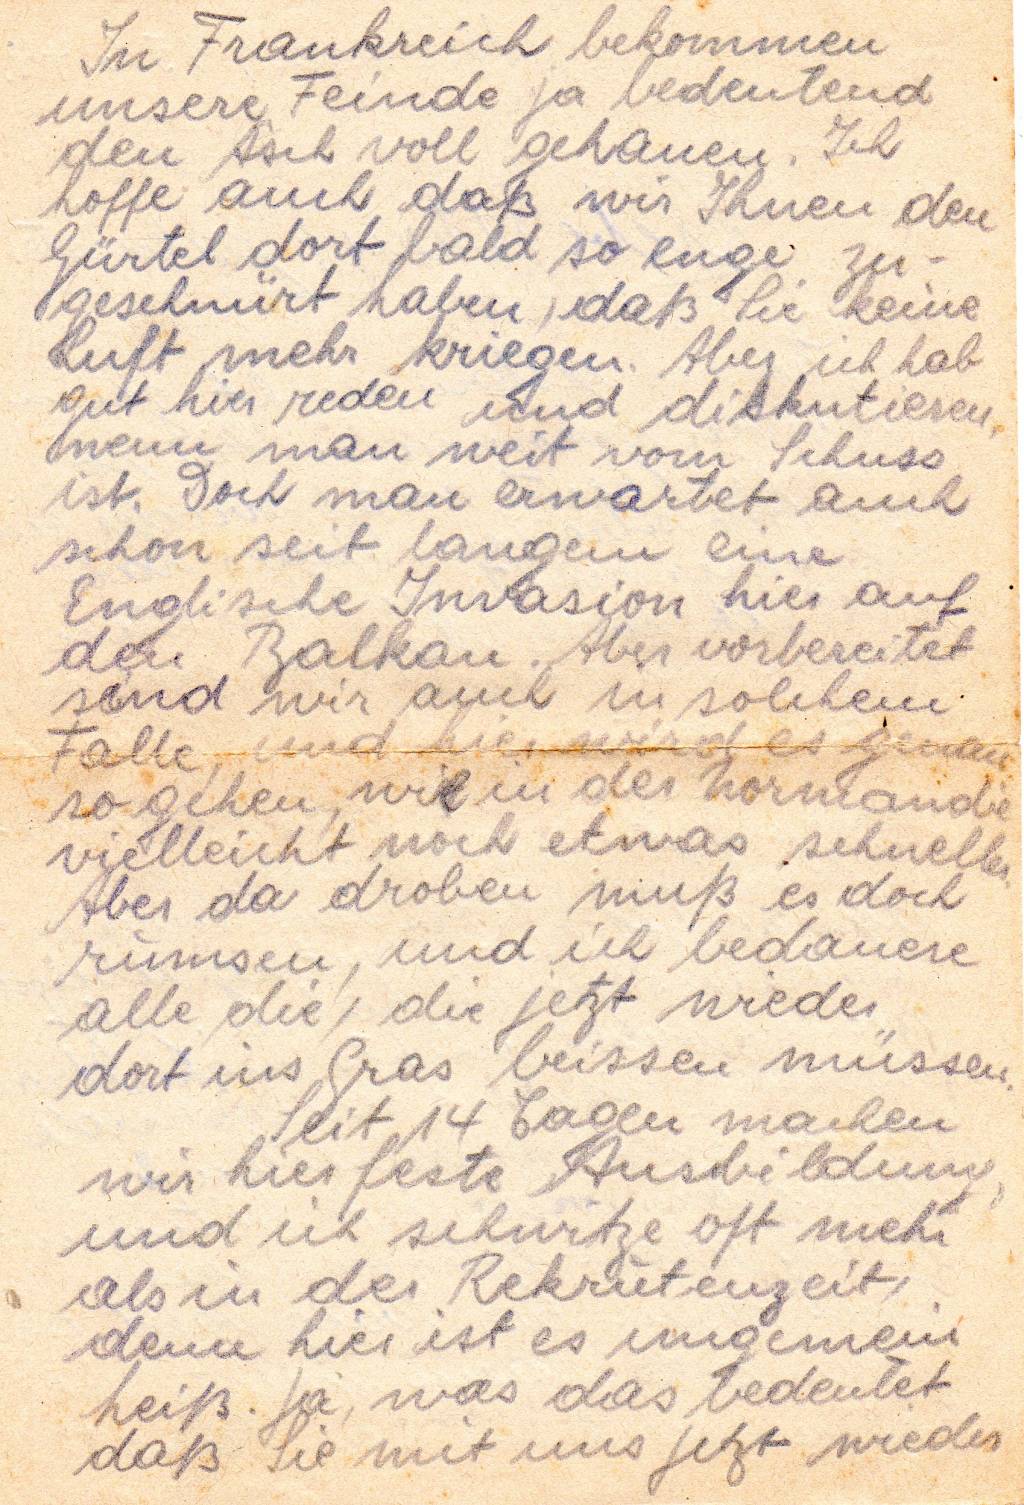 In Frankreich bekommen
unsere Feinde ja bedeutend
den Asch voll gehauen. Ich
hoffe auch daß wir Ihnen den
Gürtel dort bald so enge zu-
geschnürt haben, daß Sie keine
Luft mehr kriegen. Aber ich hab
gut hier reden und diskutieren,
wenn man weit vom Schuss
ist. Doch man erwartet auch
schon seit langem eine
Englische Invasion hier auf
den Balkan. Aber vorbereitet
sind wir auch in solchem
Falle, und hier wird es genau
so gehen, wie in der Normandie
vielleicht noch etwas schneller.
Aber da droben muß es doch
rumsen, und ich bedauere
alle die, die jetzt wieder
dort ins Gras beissen müssen.
Seit 14 Tagen machen
wir hier feste Ausbildung,
und ich schwitze oft mehr
als in der Rekrutenzeit,
denn hier ist es ungemein
heiß. Ja, was das bedeutet
daß Sie mit uns jetzt wieder